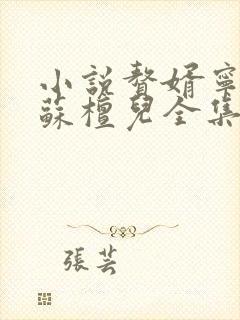 小説贅婿寧
蘇檀兒全集
張芸